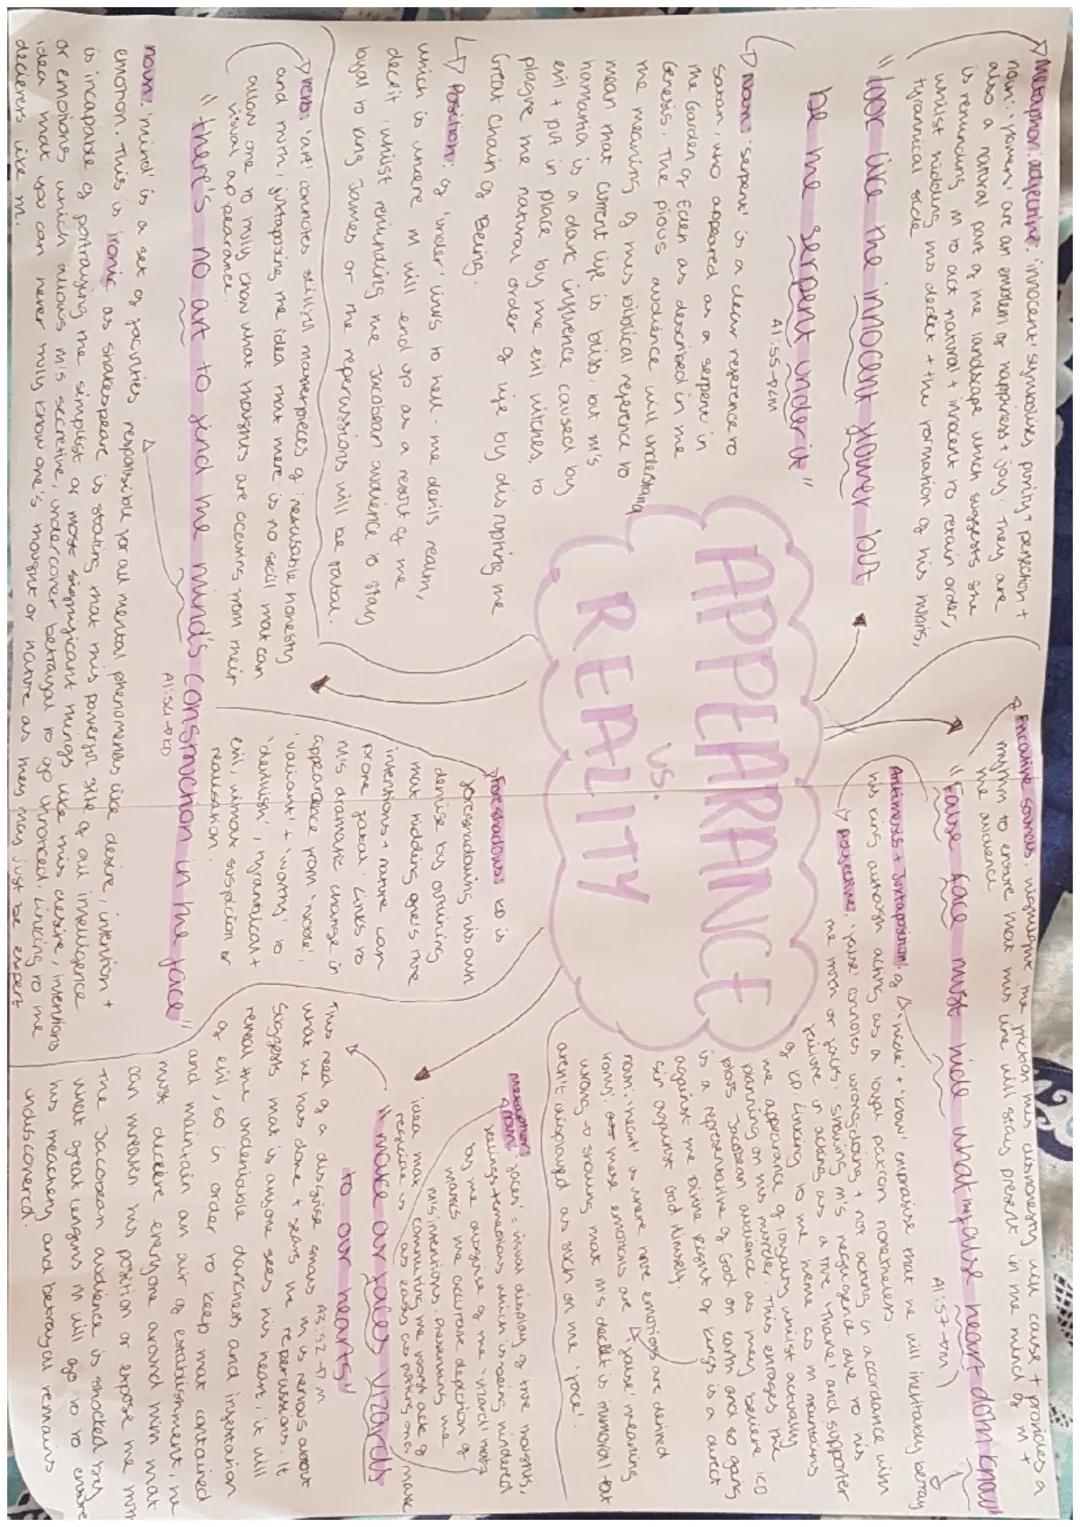 APPEARANCE
VS.
REALITY
Metaphor: adjective: 'innocent' symbolises purity + perfection +
noun: 'flower' are an emblem of happiness + joy. They are
also a natural part of the landscape which suggests she
is renuncing M to act natural + innocent to retain order,
whilst hidding his deceit + the formation of his hubris,
tyrannical side
"look like the innocent flower but
be the serpent under it"
A1:S5-LM
Noun: 'serpent' is a clear reference to
satan, who appeared as a serpent in
the Garden of Eden as described in the
Genesis. The pious audience will understand
the meaning of this biblical reference to
mean that current life is bliss, but M's
hamartia is a dark influence caused by
evil + put in place by the evil witches, to
plague the natural order of life by disrupting the
Great Chain of Being.
Position: of 'under' links to hell - the devils realm,
which is where M will end up as a result of the
deceit, whilst reminding the Jacobean audience to stay
loyal to King James or the repercussions will be fatal.
Verb: 'art' connotes skillful masterpieces of honesty
and truth, juxtaposing the idea that there is no skill that can
allow one to truly know what thoughts are occuring from their
visual appearance.
"there's no art to find the mind's construction in the face"
A1:S4-KD
noun: 'mind' is a set of faculties responsible for all mental phenomenas like desire, intention +
emotion. This is ironic as shakespeare is stating that this powerful site of all intelligence
is incapable of portraying the simplist or most significant things like this desire, intentions
or emotions which allows M's secretive, undercover betrayal to go unnoticed. Linking to the
idea that you can never truly know one's thought or nature as they may just be expert
decievers like M.
Foreshadows: KD is
foreshadowing his own
demise by outlining
that hidding one's true
intentions + nature can
prove fatal. Links to
M's dramatic change in
appearance from 'noble',
'valiant' + 'worthy' to
'devilish', tyrannical +
evil, without suspicion or
realisation.
Fricative sounds: highlight the friction his dishonesty will cause + provides a
rhythm to ensure that this line will stay present in the mind of M +
the audience
"False face must hide what the false heart doth know"
A1:S7-M
Antithesis + Juxtaposition: of 'hide' + 'know' emphasise that he will inevitably betray
his king although acting as a loyal patron nonetheless.
Adjective: 'false' connotes wrongdoing + not acting in accordance with
the truth or facts; showing M's negligence due to his
failure in acting as a true thane and supporter
of KD. Linking to the theme as M maintains
the appearance of loyalty whilst actually
planning on his murder. This enrages the
Jacobean audience as they believe KD
is a representative of God on earth and so going
against the Divine Right of Kings is a direct
sin against God Himself.
noun: 'heart' is where true emotions are derived
irony: these emotions are 'false' meaning
wrong → showing that M's deceit is immoral but
aren't displayed as such on the 'face'.
"make our faces vizards
to our hearts"
A3:S2-M
Metaphor + noun: 'faces' = visual display of true thoughts,
feelings + emotions which is being hindered
by the disguise of the 'vizard' mask
masks the accurate depiction of
M's intentions. Presenting the
idea that committing the worst acts of
regicide is as easy as putting on a mask
This need of a disguise shows M is nervous about
what he has done + fears the repercussions. It
suggests that is anyone sees his heart, it will
reveal the undeniable darkness and infestation
of evil, so in order to keep that contained
and maintain an air of establishment, he
must decieve everyone around him that
can threaten his position or expose the truth
The Jacobean audience is shocked by
what great lengths M will go to to ensure
his treachery and betrayal remains
undiscovered.